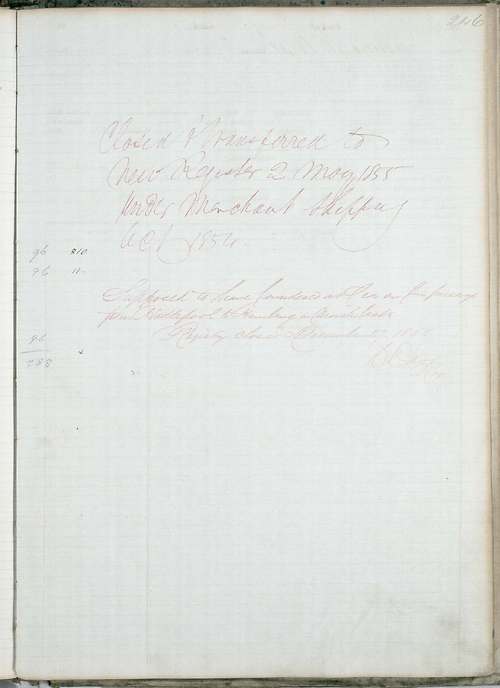 246
Closed & transferred to
New Register 2 May 1855
Under Merchant Shipping
Act 1854
96 210
96 11
Supposed to have foundered at Sea on the passage
from Hartlepool to
Registry closed December
96
288